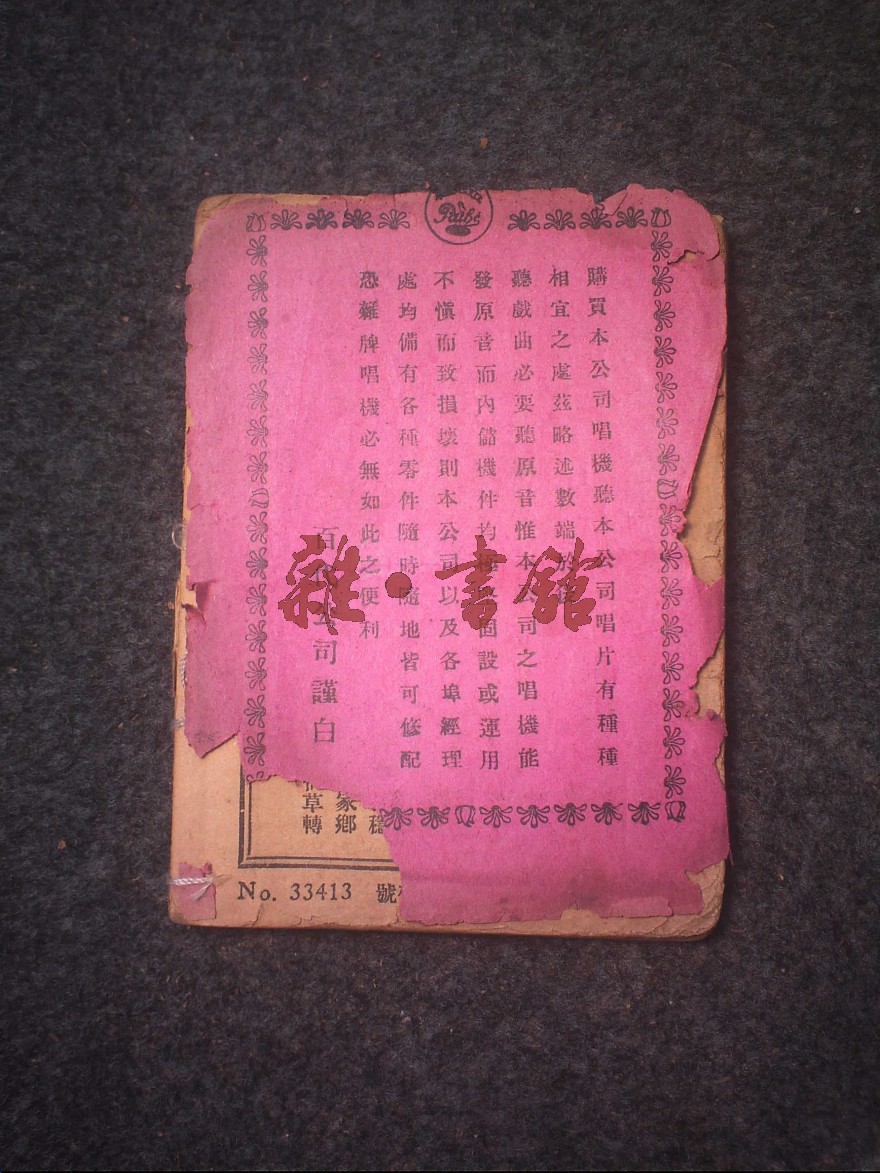 Pathé
購買本公司唱機聽本公司唱片有種種
相宜之處茲略述數端於後
聽戲曲必要聽原音惟本公司之唱機能
發原音而內儲機件均極堅固設或運用
不慎而致損壞則本公司以及各埠經理
處均備有各種零件隨時隨地皆可修配
恐雜牌唱機必無如此之便利
百代公司謹白
雜·書館
家鄉
草轉
No. 33413 號